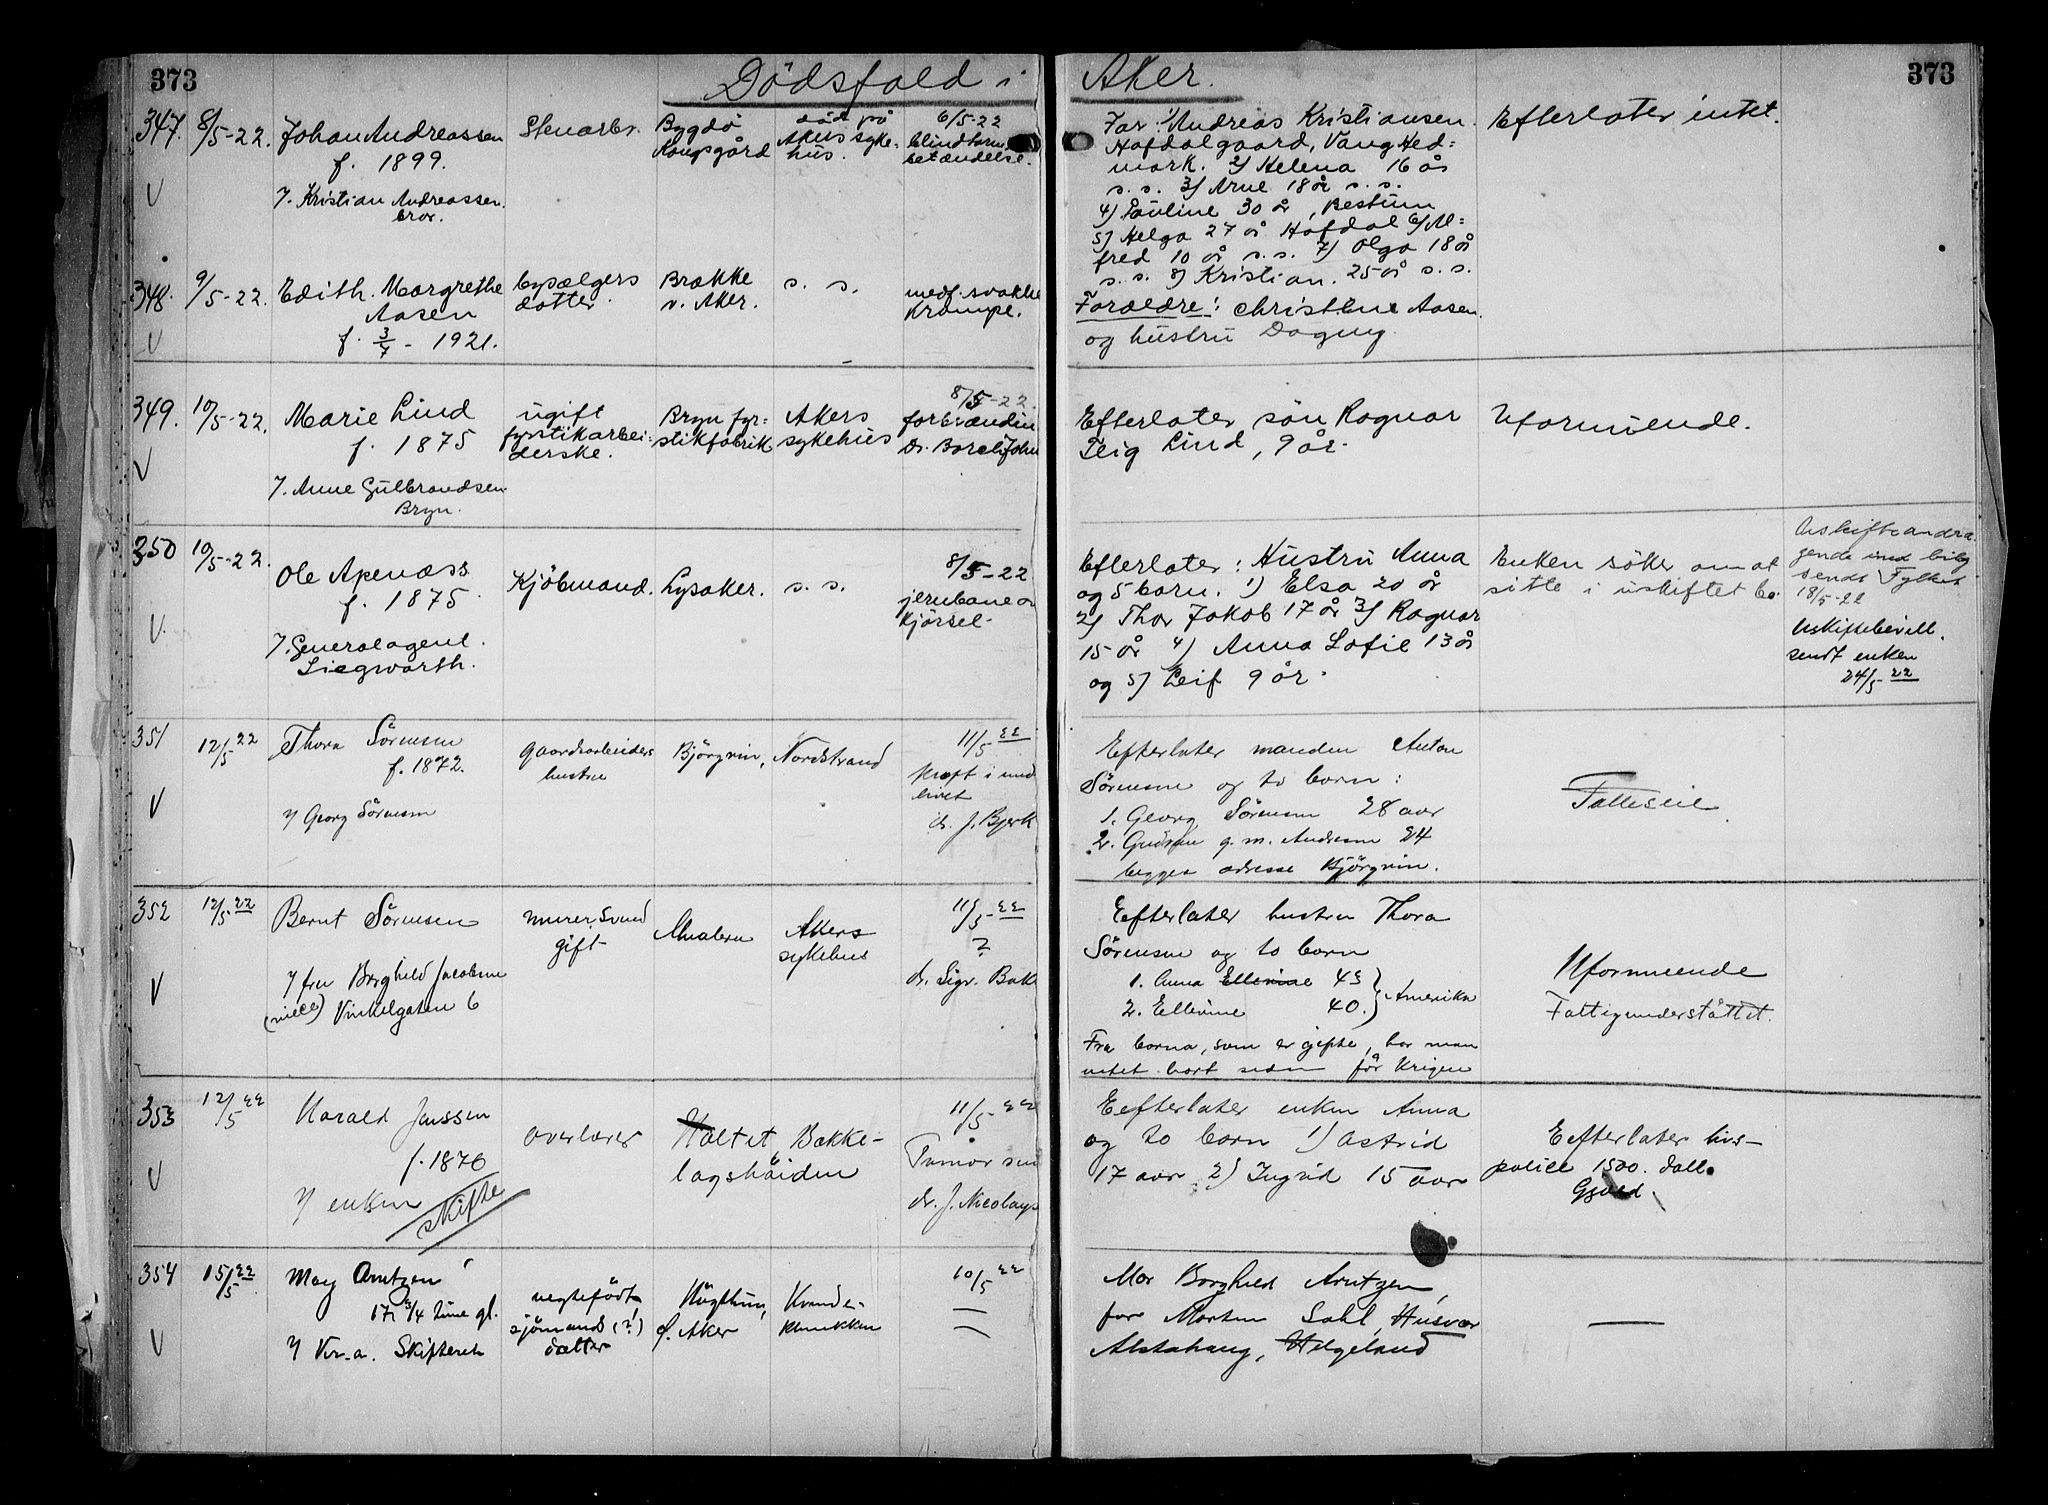 373 Dödsfald i Aker. 373
347. 8/5-22. Johan Andreassen
f. 1899.
7. Kristian Andreassen.
bror.
Stenarb.
Bygdö
Kongsgård
död på
Akers syke-
hus.
6/5-22
blindtarm
betændelse.
Far: 1/ Andreas Kristiansen.
Hofdalgaard, Vang Hed=
mark. 2/ Helena 16 år
s. s. 3/ Arne 18 år s. s.
4) Pauline 30 år, Bestum
5) Helga 27 år Hofdal 6/ Al=
fred 10 år s. s. 7) Olga 18 år
s. s. 8) Kristian. 25 år s. s.
Efterlater intet.
348. 9/5-22. Edith Margrethe
Aasen
f. 3/7 - 1921.
datter
Brække
v. Aker.
s. s.
medf. svakhe
Krampe.
Forældre: Christene Aasen.
og hustru Dagny
349. 10/5-22. Marie Lind
f. 1875
7. Anne Gulbrandsen
Bryn.
ugift
fyrstikarbei=
derske.
Bryn fyr=
stikfabrik
Akers
sykehus
8/5-22
forbrændin
Dr. Borch John
Efterlater sön Ragnar
Teig Lind, 9 år.
Uformuende.
350 10/5-22. Ole Apenæss
f. 1875
7. Generalagent.
Siegwarth.
Kjöbmand.
Lysaker.
s. s.
8/5-22
jernbane
kjörsel.
Efterlater: Hustru Anna
og 5 barn. 1) Elsa 20 år
2) Thor Jakob 17 år 3/ Ragnar
15 år 4) Anna Sofie 13 år
og 5) Leif 9 år.
Enken söker om at
sitte i uskiftet bo.
Uskifteandra
gende
sendt Fylket
18/5-22
Uskiftebevill.
sendt enken
24/5 22
351 12/5 22 Thora Sörensen
f. 1872.
7 Georg Sörensen
gaardsarbeiders
hustru
Björgvin, Nordstrand
11/5 22
kræft i und
livet
dr. J. Bjerk
Efterlater manden Anton
Sörensen og to barn:
1. Georg Sörensen 28 aar
2. Gudrun g. m. Andresen 24
begges adresse Björgvin.
Fælleseie
352 12/5 22 Bernt Sörensen
7 fru Borghild Jacobsen
(niece) Vinkelgaten 6
murer.
gift
Akers
sykehus
11/5 22
?
dr. Sigr. Bak
Eefterlater hustru Thora
Sörensen og to barn
1. Anna Ellevine 43
2. Ellevine 40. Amerika
Fra barna, som er gifte, har man
intet hört siden för krigen
Uformuende
Fattigunderstöttet.
353 12/5 22 Harald Janssen
f. 1876
7 enken
skifte
overlærer
Holtet, Bække-
lagshöiden
11/5 22
Tumor
dr. J. Nicolays
Eefterlater enken Anna
og to barn 1) Astrid
17 aar 2) Ingrid 15 aar
Eefterlater livs-
police 1500.
Gjæld.
354 15/5 22 May Arntzen
17 3/4 time gl.
7 Kr.a. Skifteret
uegtefödt
sjömands (?)
datter
Høgthun,
Aker
Kvinde-
klinikken
10/5 22
Mor Borghild Arntzen,
far Morten Dahl, Husvær
Alstahaug, Helgeland